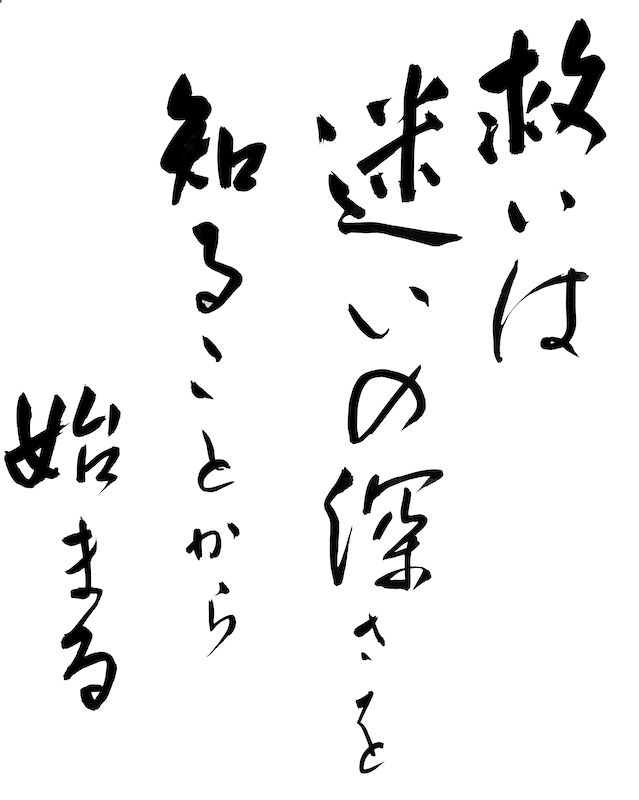 救いは
迷いの深さを
知ることから
始まる